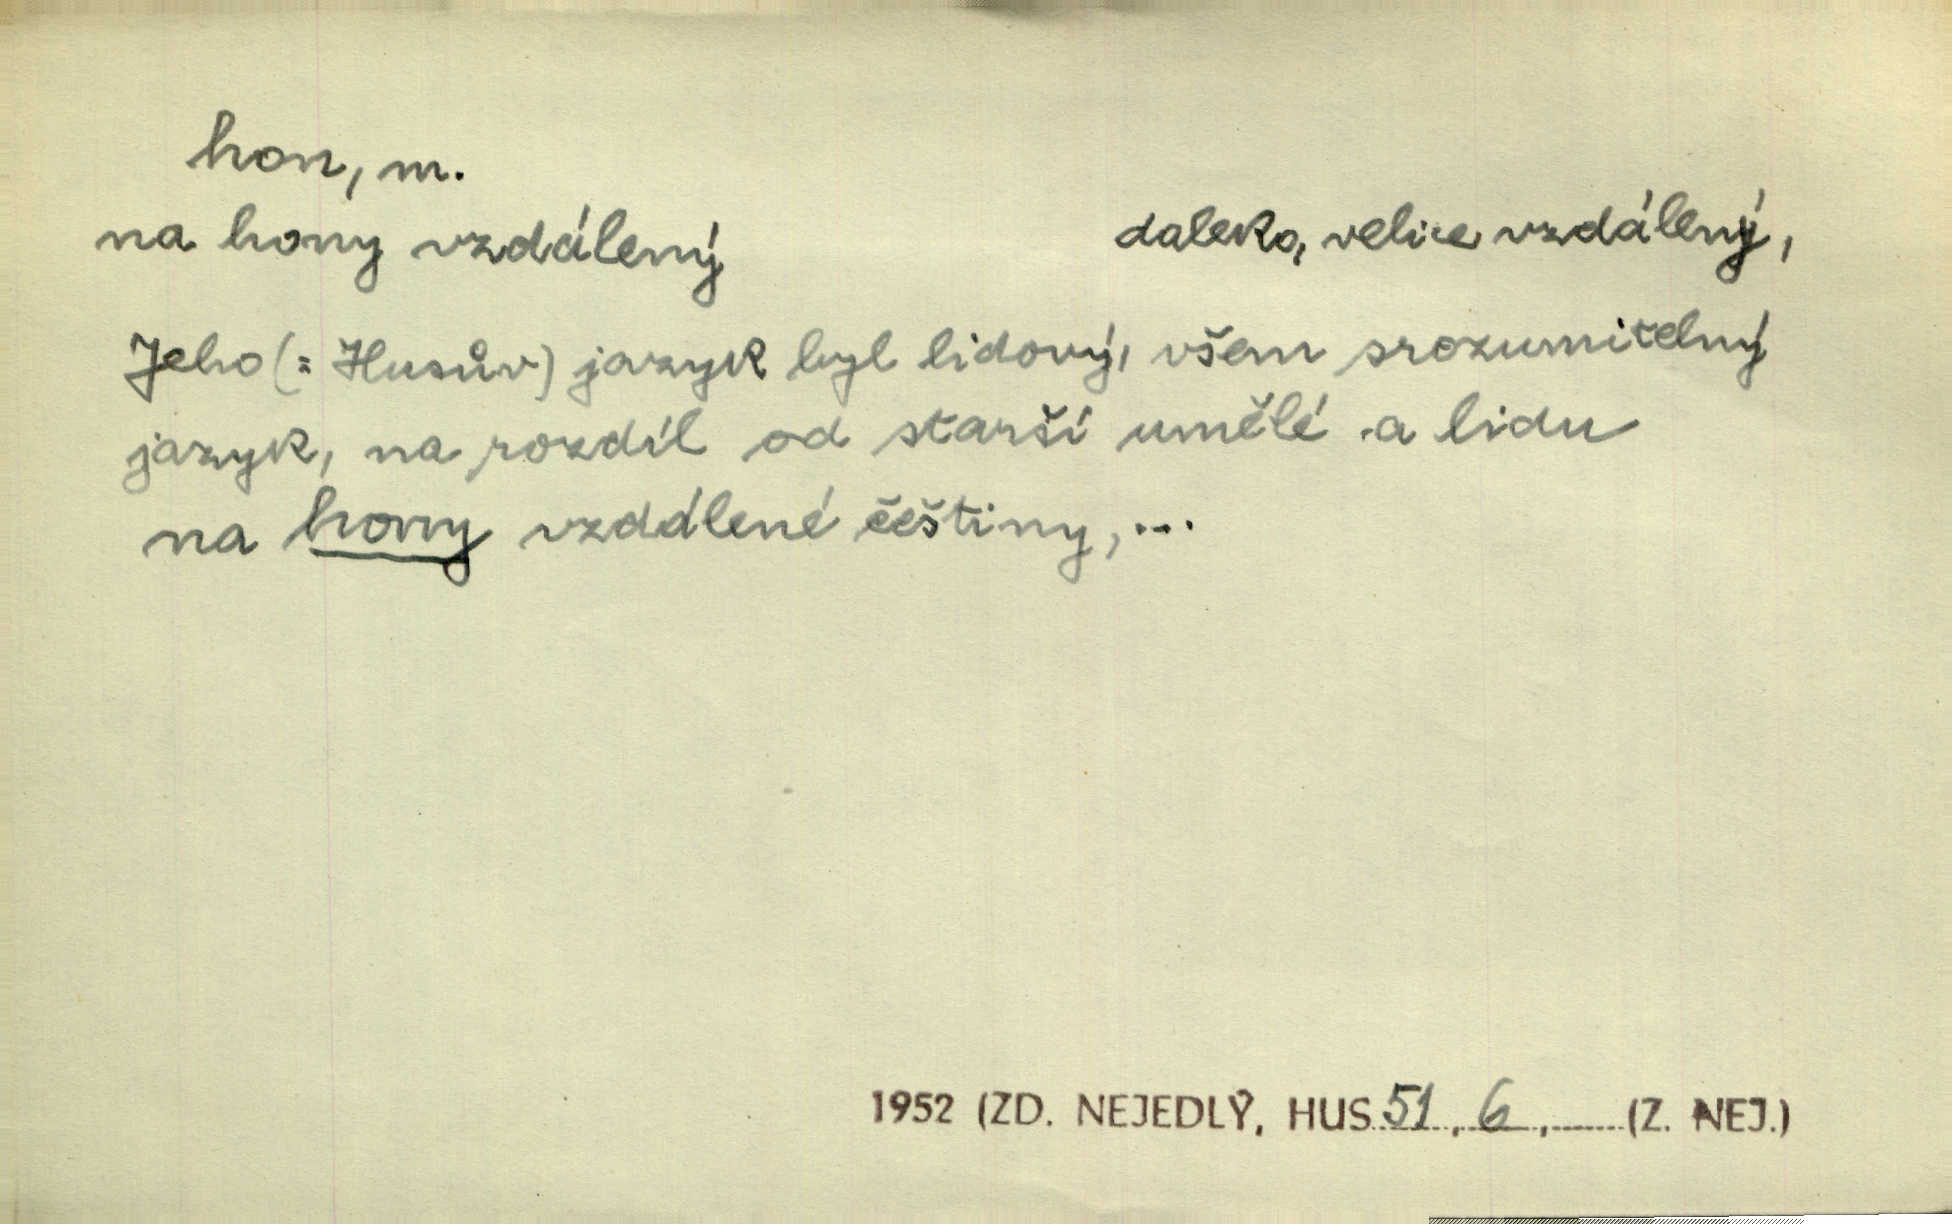 hon, m.
na hony vzdálený daleko, velice vzdálený,
Jeho (= Husův) jazyk byl lidový, všem srozumitelný
jazyk, na rozdíl od starší umělé a lidu
na hony vzdálené češtiny, ...
1952 (ZD. NEJEDLÝ, HUS 51, 6, (Z. NEJ.)